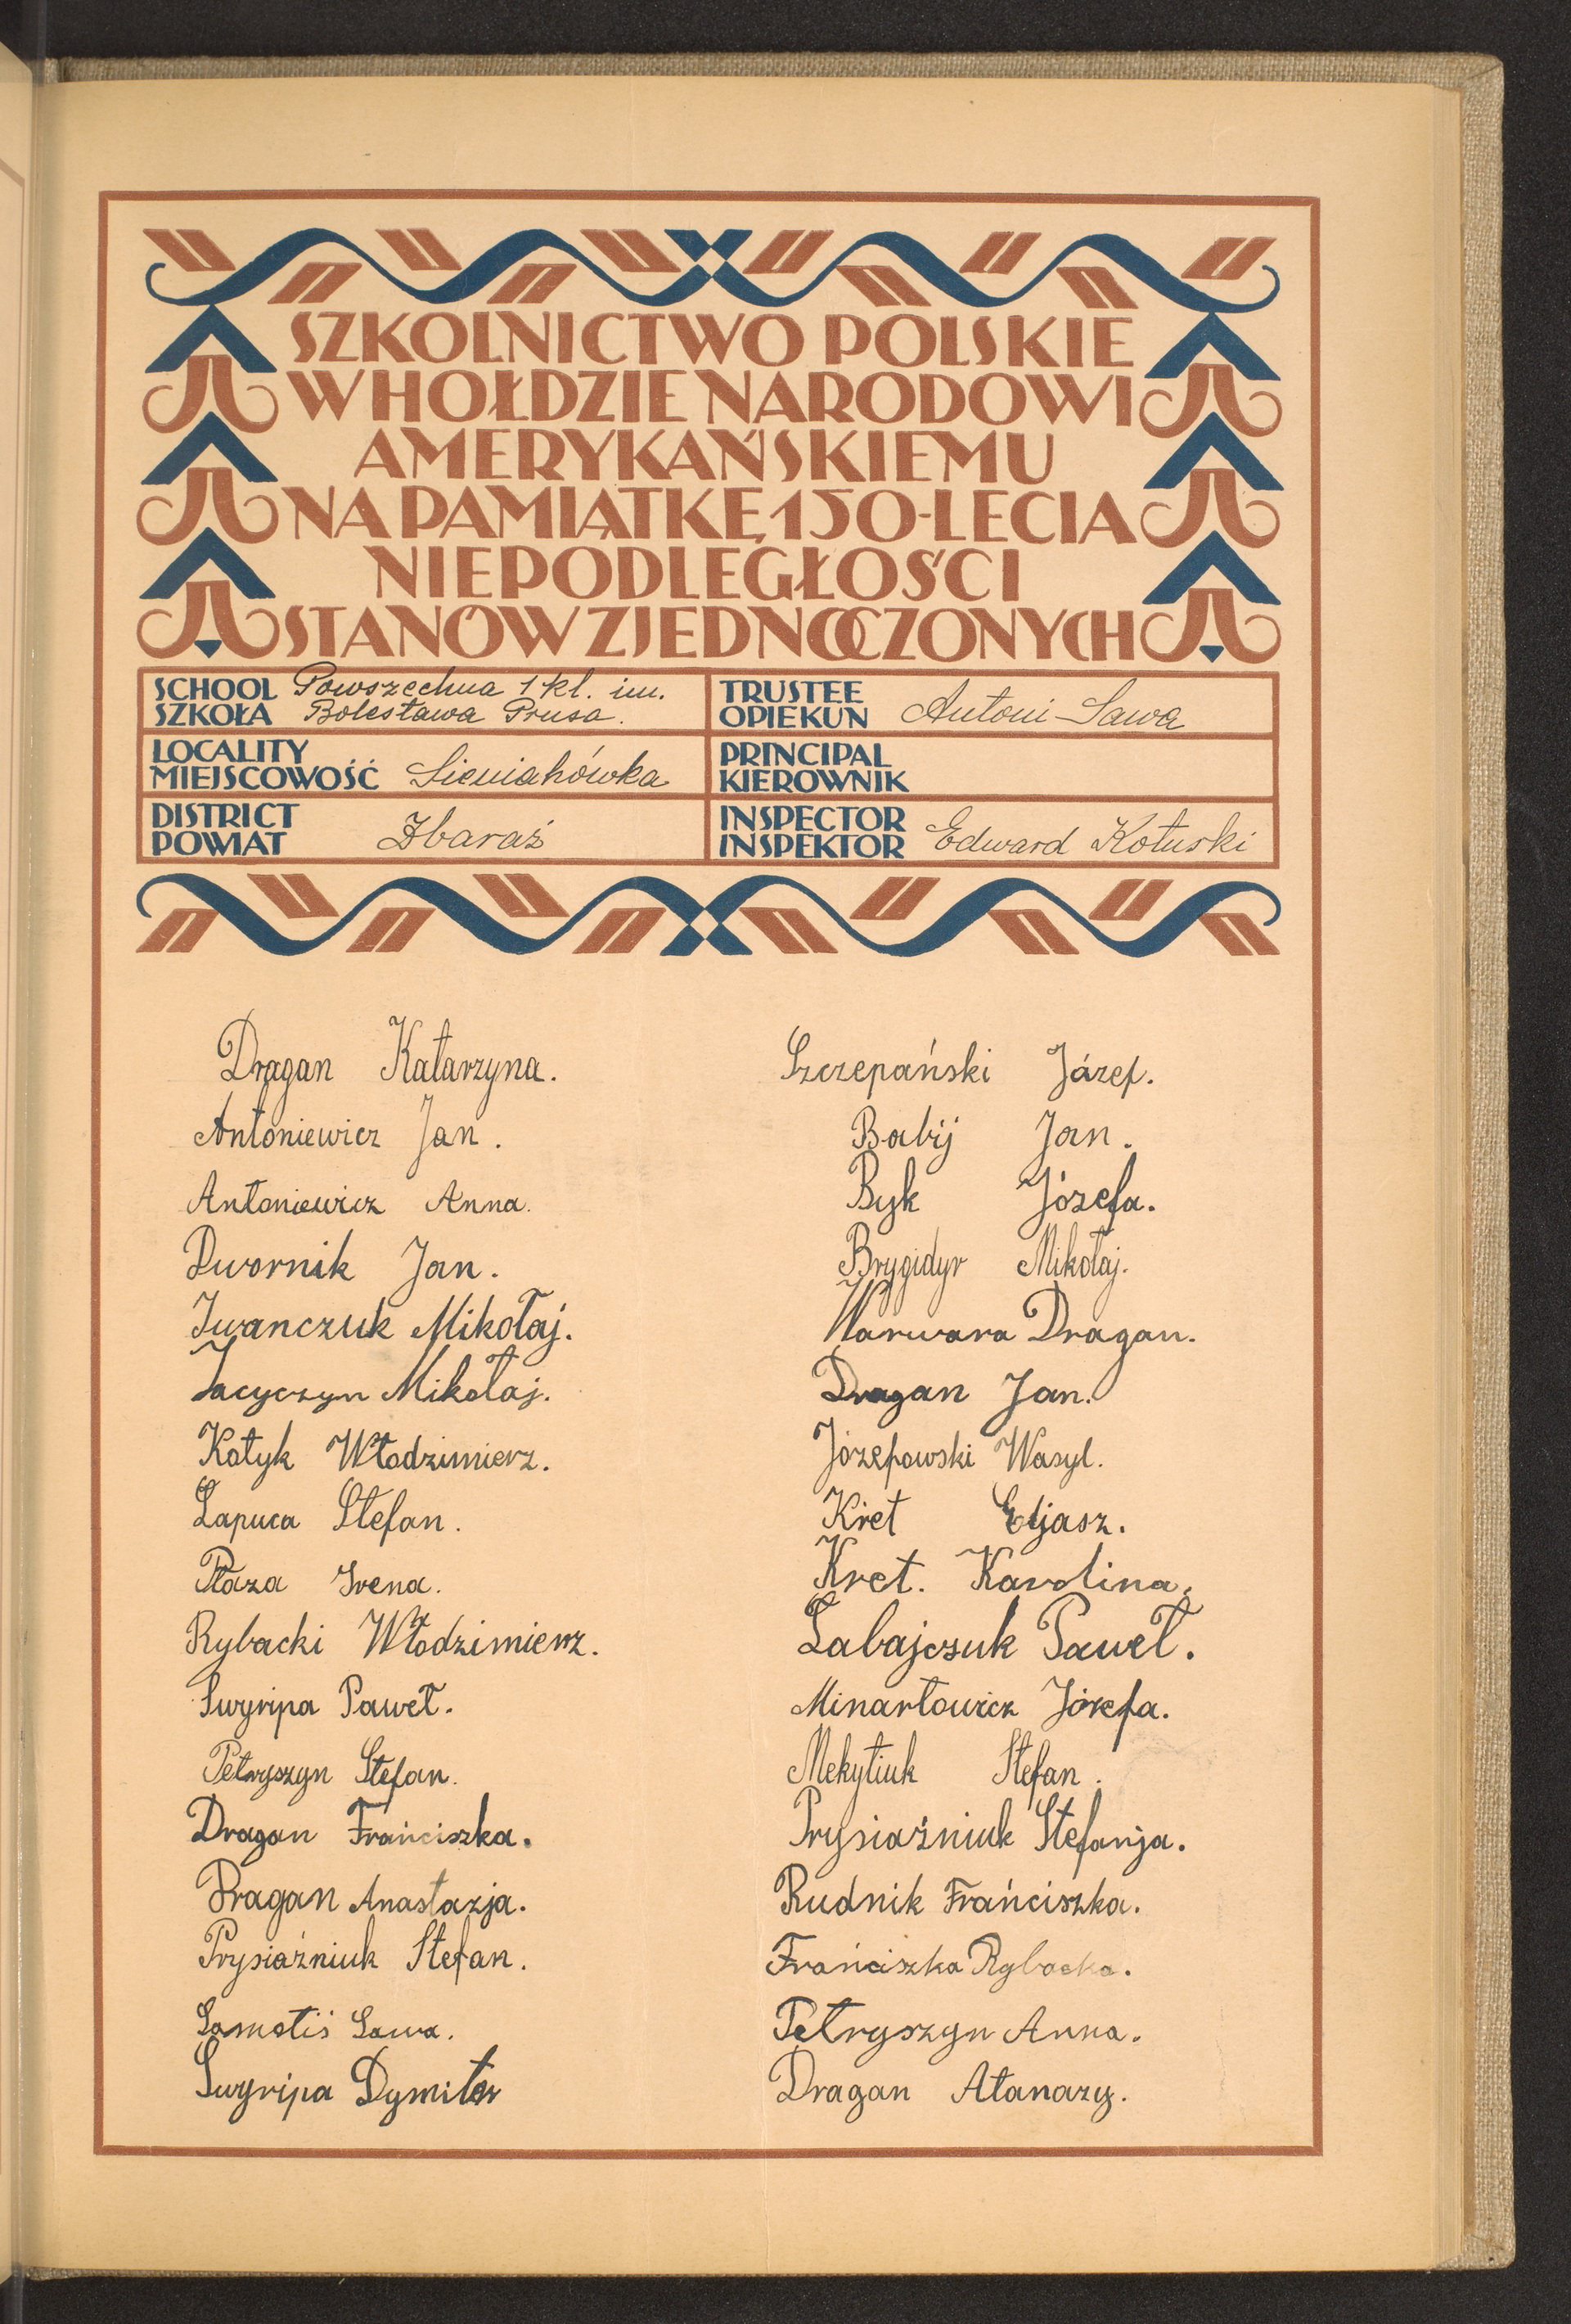 SZKOLNICTWO POLSKIE
W HOŁDZIE NARODOWI
AMERYKAŃSKIEMU
NA PAMIĄTKĘ 150-LECIA
NIEPODLEGŁOŚCI
STANÓW ZJEDNOCZONYCH
SCHOOL
SZKOŁA
Powszechna 1 kl. im.
Bolesława Prusa.
TRUSTEE
OPIEKUN
Antoni Sawa
LOCALITY
MIEJSCOWOŚĆ
Sieniahówka
PRINCIPAL
KIEROWNIK
DISTRICT
POWIAT
Zbaraż
INSPECTOR
INSPEKTOR
Edward Kotuski
Dragan Katarzyna.
Antoniewicz Jan.
Antoniewicz Anna.
Dwornik Jan.
Iwanczuk Mikołaj.
Jacyczyn Mikołaj.
Kotyk Włodzimierz.
Łapuca Stefan.
Płaza Irena.
Rybacki Włodzimierz.
Swyripa Paweł.
Petryszyn Stefan.
Dragan Frańciszka.
Dragan Anastazja.
Prysiaźniuk Stefan.
Sawa.
Swyripa Dymitr
Szczepański Józef.
Babij Jan.
Byk Józefa.
Brygidyr Mikołaj.
Warwara Dragan.
Dragan Jan.
Józefowski Wasyl.
Kret Eljasz.
Kret. Karolina.
Łabajczuk Paweł.
Minartowicz Józefa.
Mekytiuk Stefan.
Prysiaźniuk Stefanja.
Rudnik Frańciszka.
Frańciszka Rybacka.
Petryszyn Anna.
Dragan Atanazy.